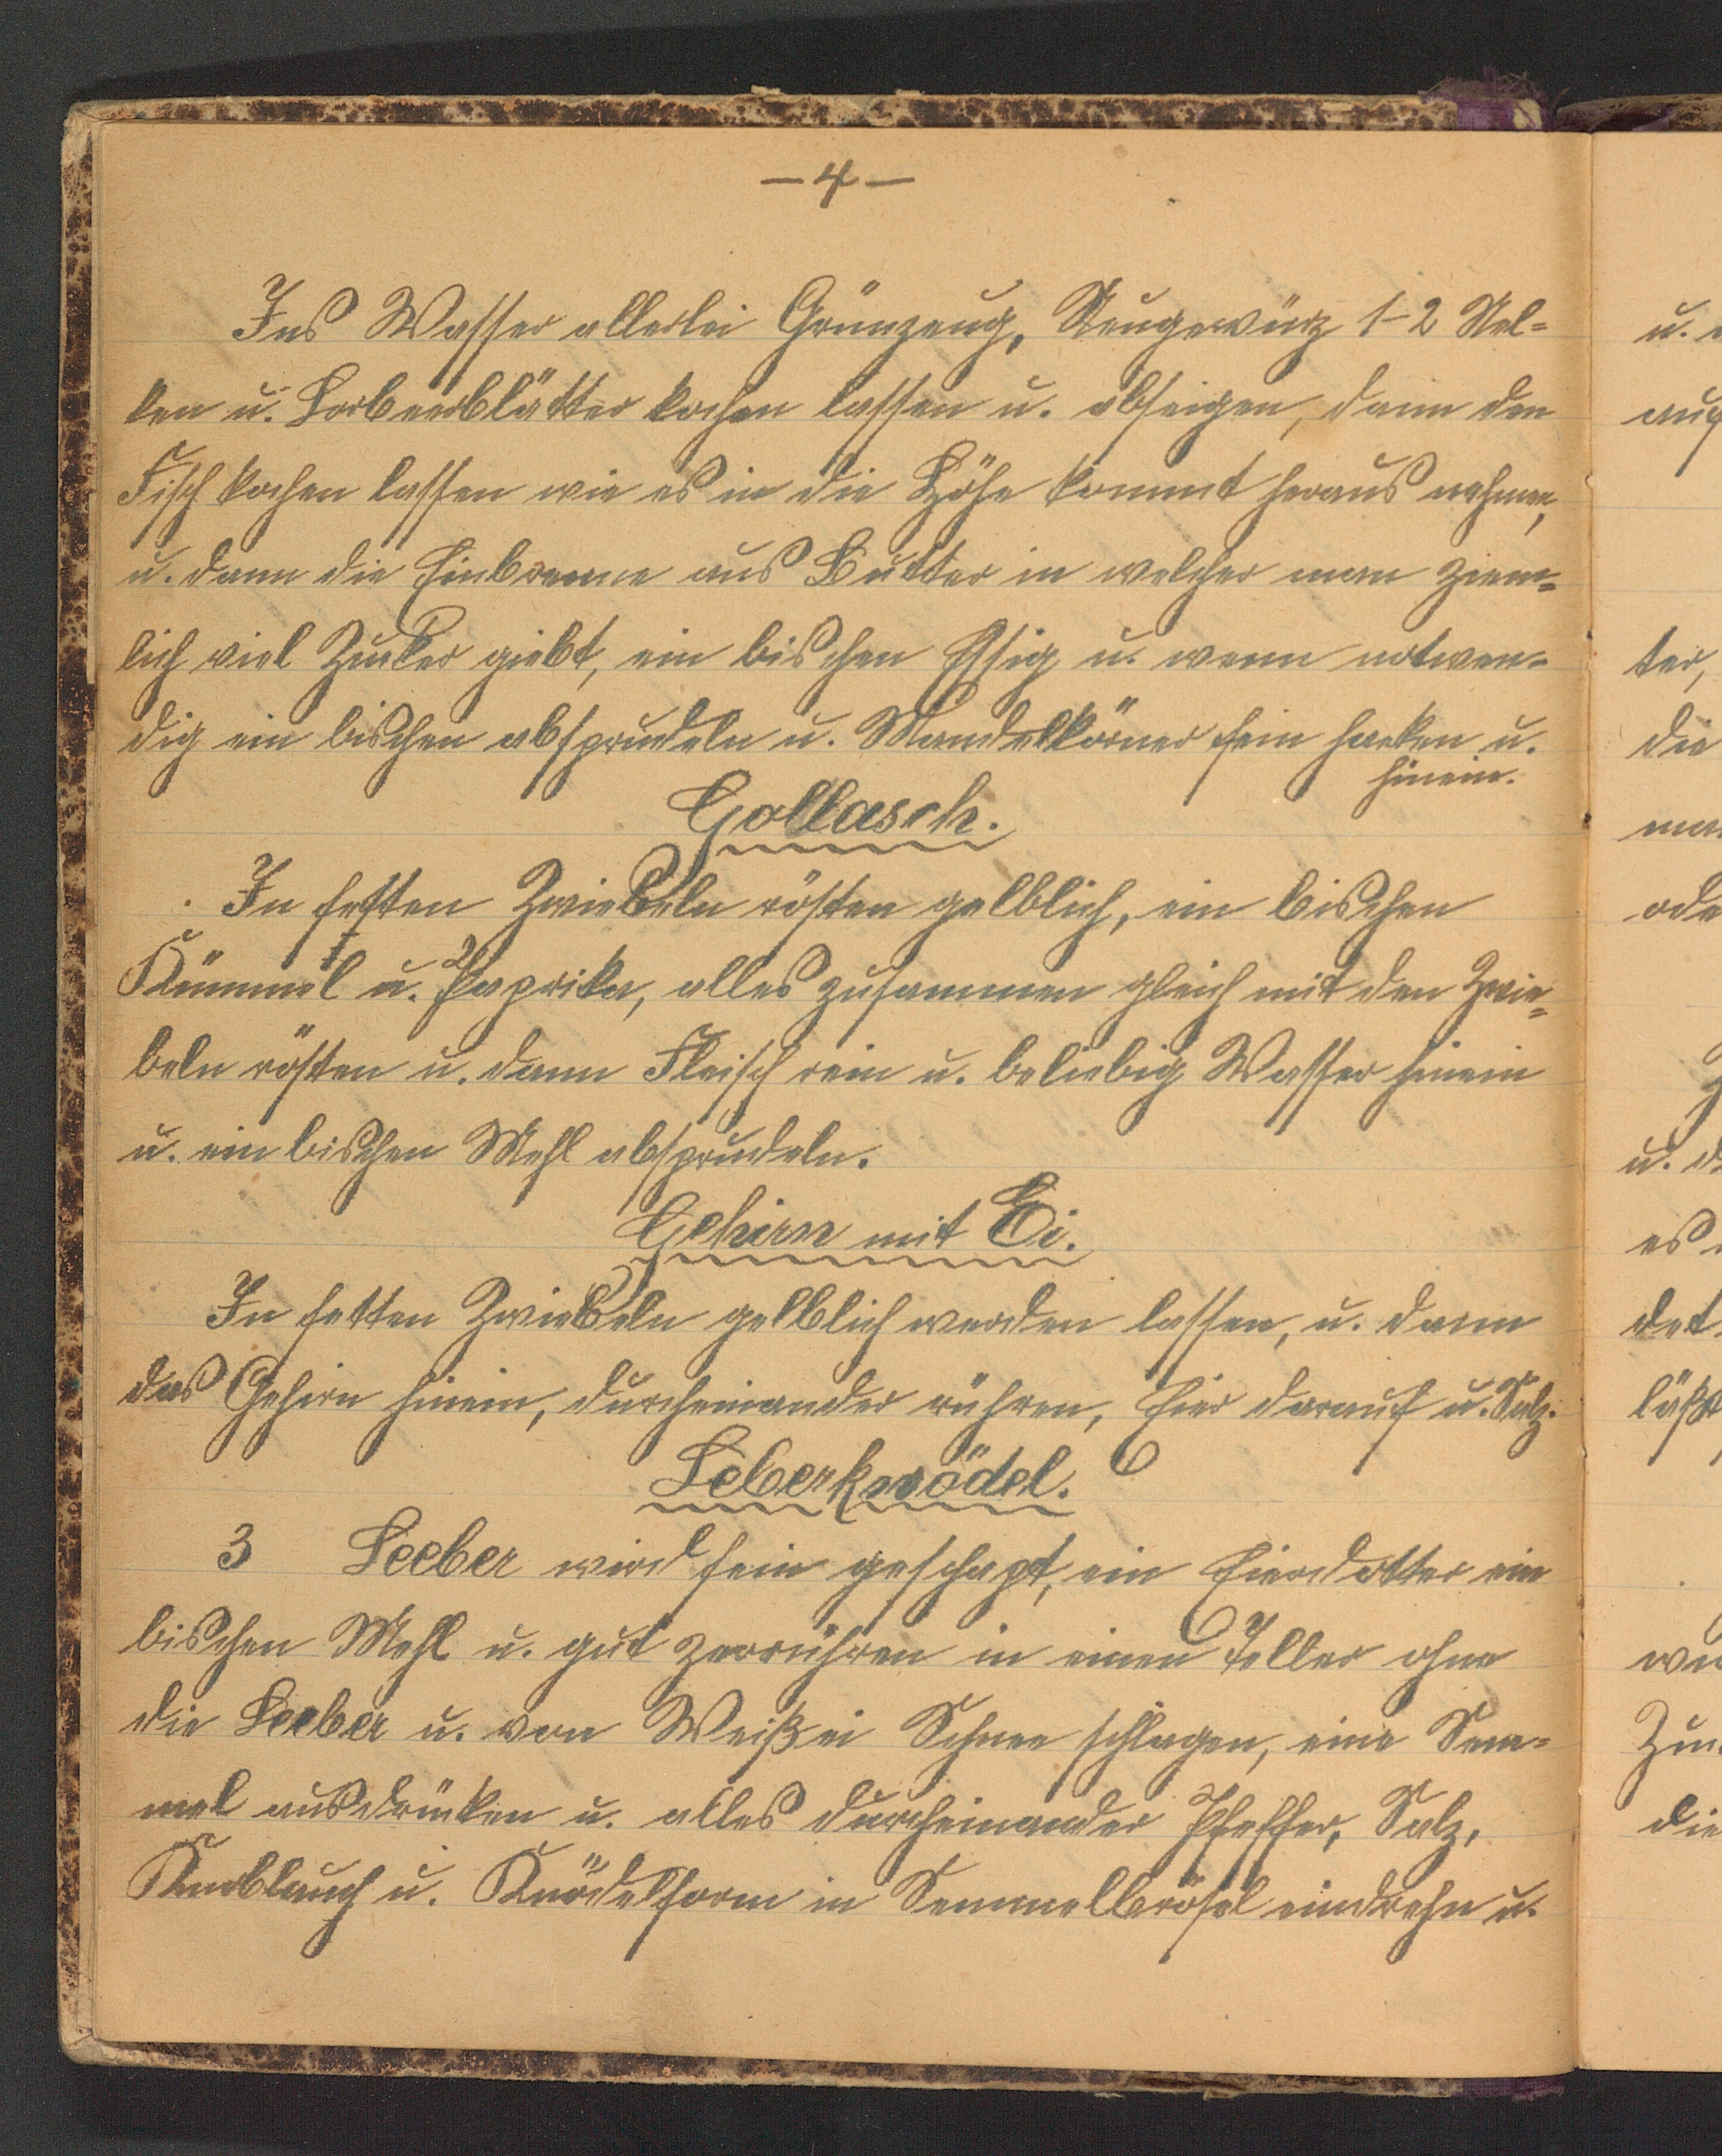 —4—
Ins Wasser allerlei Grünzeug, Neugewürz 1-2 Nel=
ken u. Lorbeerblätter kochen lassen u. abseigen, dann den
Fisch kochen lassen wie es in die Höhe kommt heraus nehmen,
u. dann die Einbrenne aus Butter in welcher man ziem=
lich viel Zucker giebt, ein bischen Essig u. wenn notwen=
dig ein bischen absprudeln u. Mandelkörner fein hacken u.
hinein.
Gollasch.
In fetten Zwiebeln rösten gelblich, ein bischen
Kümmel u. Paprika, alles zusammen gleich mit den Zwie=
beln rösten u. dann Fleisch rein u. beliebig Wasser hinein
u. ein bischen Mehl absprudeln.
Gehirn mit Ei.
In fetten Zwiebeln gelblich werden lassen, u. dann
das Gehirn hinein, durcheinander rühren, Eier darauf u. Salz.
Leberknödel.
3 Leeber wird fein geschapt, ein Eierdotter ein
bischen Mehl u. gut zerrühren in einen Teller ohne
die Leeber u. von Weißei Schnee schlagen, eine Sem=
mel ausdrücken u. alles durcheinander Pfeffer, Salz,
Knoblauch u. Knödelform in Semmelbrösel eindrehn u.
u.
auf
ter,
die
man
ode
u. d
es
det
läßt
die